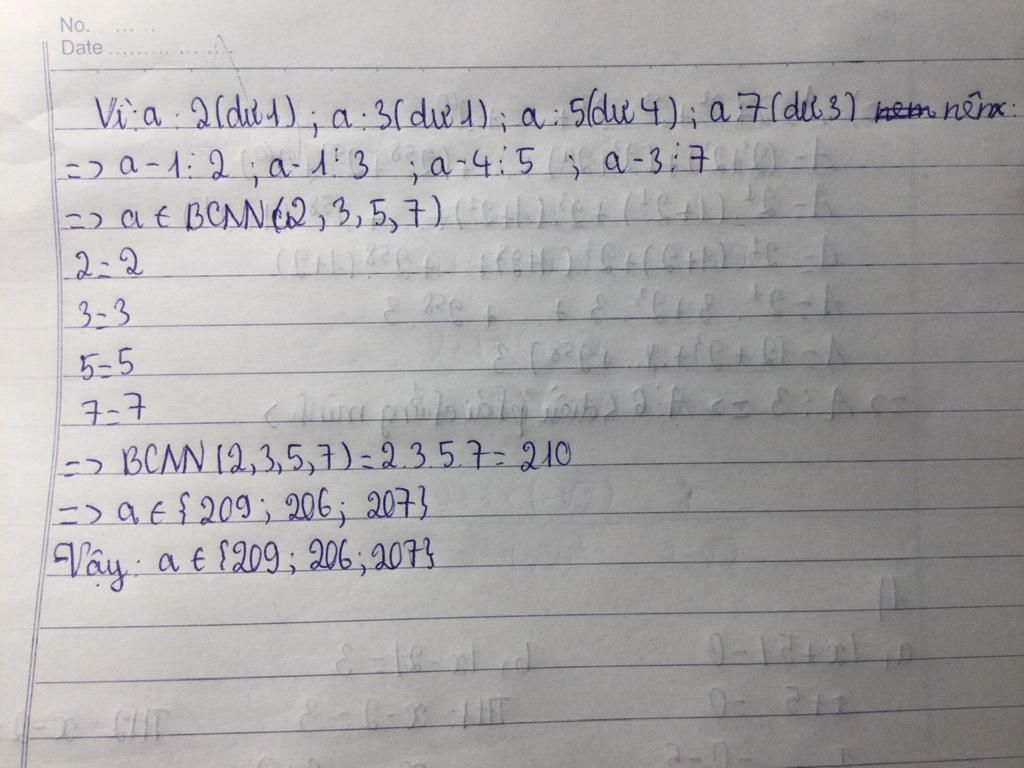 No. ......
Date ..................
Vì: a : 2(dư 1) ; a : 3(dư 1) ; a : 5(dư 4) ; a : 7(dư 3) nên:
=> a - 1 ⋮ 2 ; a - 1 ⋮ 3 ; a - 4 ⋮ 5 ; a - 3 ⋮ 7
=> a ∈ BCNN(2, 3, 5, 7)
2 = 2
3 = 3
5 = 5
7 = 7
=> BCNN (2, 3, 5, 7) = 2.3.5.7 = 210
=> a ∈ {209 ; 206 ; 207}
Vậy: a ∈ {209 ; 206 ; 207}